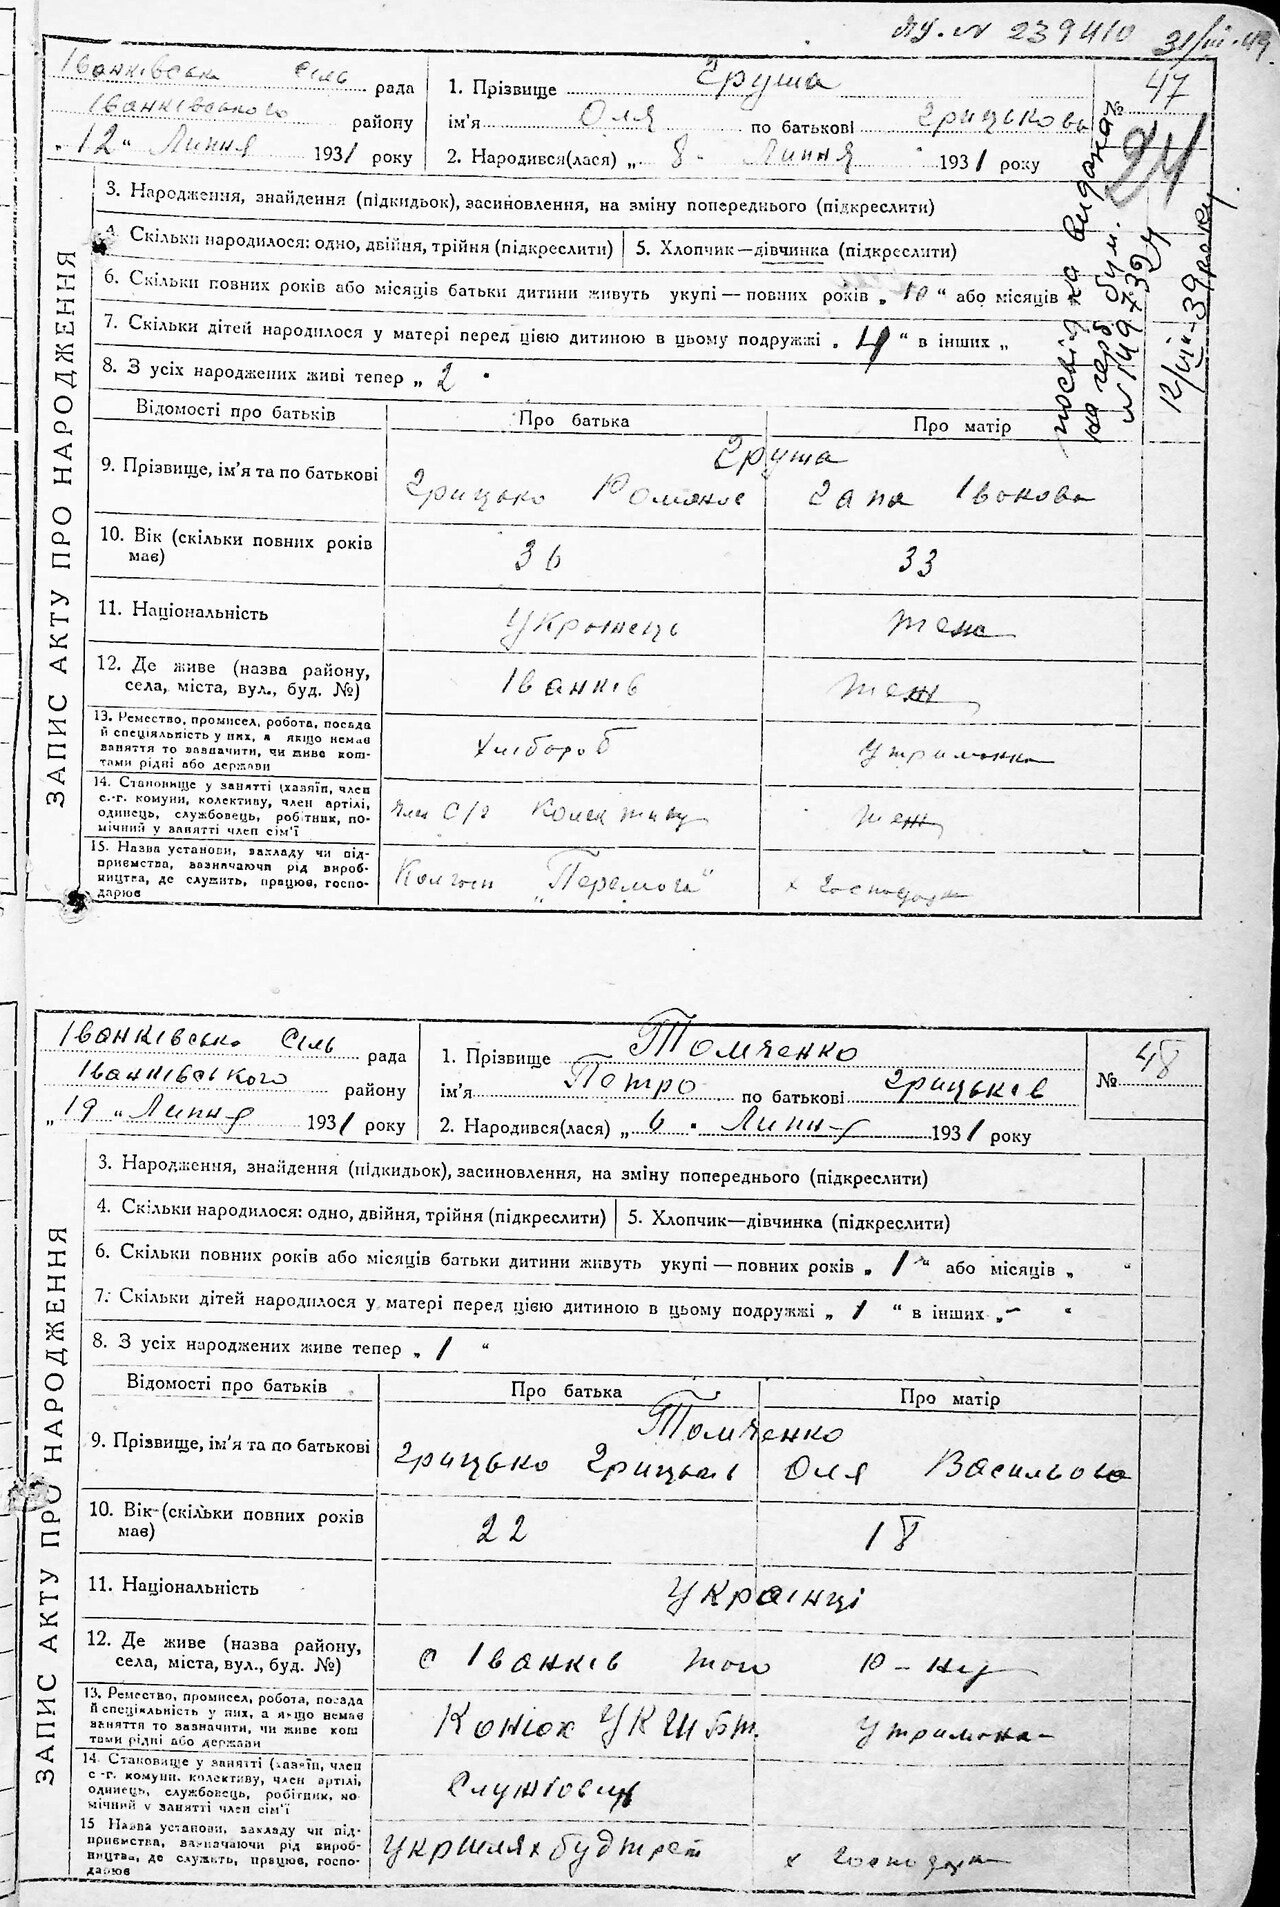 № 239410 31/III-49.
Іванківська сіль рада
Іванківського району
„12“ Липня 1931 року
1. Прізвище Груша
ім'я Оля по батькові Грицькова
2. Народився(лася) „ 8 “ Липня 1931 року
№ 47
24
3. Народження, знайдення (підкидьок), засиновлення, на зміну попереднього (підкреслити)
4. Скільки народилося: одно, двійня, трійня (підкреслити) 5. Хлопчик—дівчинка (підкреслити)
6. Скільки повних років або місяців батьки дитини живуть укупі — повних років „ 10 “ або місяців
7. Скільки дітей народилося у матері перед цією дитиною в цьому подружжі „ 4 “ в інших „
8. З усіх народжених живі тепер „ 2 “
на герб бум.
№ 1497394
12/VIII-39 року.
ЗАПИС АКТУ ПРО НАРОДЖЕННЯ
Відомості про батьків Про батька Про матір
Груша
9. Прізвище, ім'я та по батькові Грицько Романов Гапа Іванова
10. Вік (скільки повних років має) 36 33
11. Національність Українець теж
12. Де живе (назва району, села, міста, вул., буд. №) Іванків теж
13. Ремество, промисел, робота, посада й спеціяльність у них, а якщо немає заняття то зазначити, чи живе коштами рідні або держави Хлібороб Утриманка
14. Становище у занятті (хазяїн, член с.-г. комуни, колективу, член артілі, одинець, службовець, робітник, помічний у занятті член сім'ї Член С/г Колективу теж
15. Назва установи, закладу чи підприємства, вазначаючи рід виробництва, де служить, працює, господарює Колгосп „Перемога“ х Господарка
Іванківська Сіль рада
Іванківського району
„19“ Липня 1931 року
1. Прізвище Томченко
ім'я Петро по батькові Грицьків
2. Народився(лася) „ 6 “ Липня 1931 року
№ 48
3. Народження, знайдення (підкидьок), засиновлення, на зміну попереднього (підкреслити)
4. Скільки народилося: одно, двійня, трійня (підкреслити) 5. Хлопчик—дівчинка (підкреслити)
6. Скільки повних років або місяців батьки дитини живуть укупі — повних років „ 1 “ або місяців „ “
7. Скільки дітей народилося у матері перед цією дитиною в цьому подружжі „ 1 “ в інших „ – “
8. З усіх народжених живе тепер „ 1 “
ЗАПИС АКТУ ПРО НАРОДЖЕННЯ
Відомості про батьків Про батька Про матір
Томченко
9. Прізвище, ім'я та по батькові Грицько Грицьків Оля Васильова
10. Вік (скільки повних років має) 22 18
11. Національність Українці
12. Де живе (назва району, села, міста, вул., буд. №) с Іванків того Р-ну
13. Ремество, промисел, робота, посада й спеціяльність у них, а якщо немає заняття то зазначити, чи живе коштами рідні або держави Конюх УКШБт. Утриманка
14. Становище у занятті (хазяїн, член с.-г. комуни, колективу, член артілі, одинець, службовець, робітник, помічний у занятті член сім'ї Службовець
15 Назва установи, закладу чи підприємства, вазначаючи рід виробництва, де служить, працює, господарює Укршляхбудтрест х Господарка